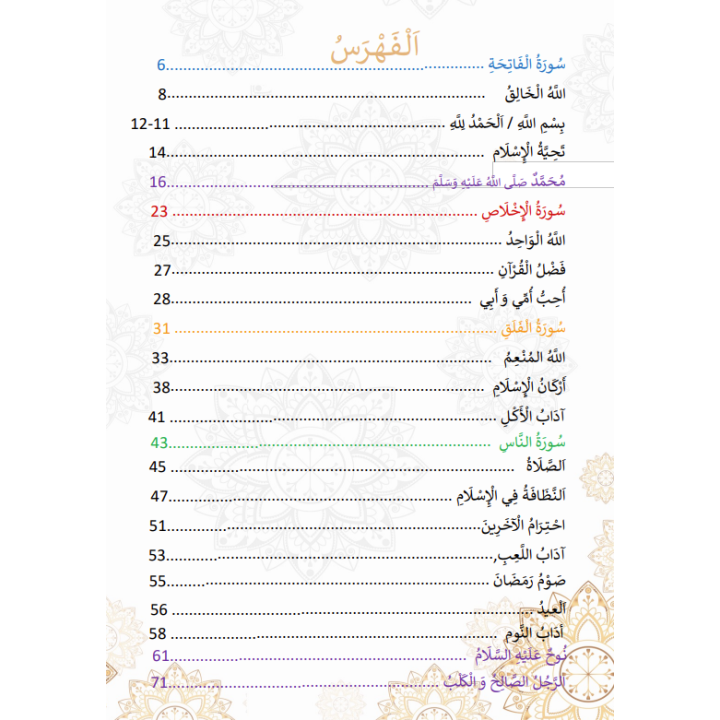 اَلْفَهْرَسُ
سُورَةُ الْفَاتِحَةِ ........................6
اللَّهُ الْخَالِقُ ........................8
بِسْمِ اللَّهِ / اَلْحَمْدُ لِلَّهِ ........................ 11-12
تَحِيَّةُ الْإِسْلَامِ ........................14
مُحَمَّدٌ صَلَّى اللَّهُ عَلَيْهِ وَسَلَّمَ ........................16
سُورَةُ الْإِخْلَاصِ ........................ 23
اللَّهُ الْوَاحِدُ ........................25
فَضْلُ الْقُرْآنِ ........................27
أُحِبُّ أُمِّي وَ أَبِي ........................28
سُورَةُ الْفَلَقِ ........................ 31
اللَّهُ المُنْعِمُ ........................33
أَرْكَانُ الْإِسْلَامِ ........................38
آدَابُ الْأَكْلِ ........................ 41
سُورَةُ النَّاسِ ........................43
اَلصَّلَاةُ ........................ 45
اَلنَّظَافَةُ فِي الْإِسْلَامِ ........................47
احْتِرَامُ الْآخَرِينَ........................51
آدَابُ اللَّعِبِ,........................53
صَوْمُ رَمَضَانَ ........................55
اَلْعِيدُ ........................ 56
أدَابُ النَّومِ ........................ 58
نُوحٌ عَلَيْهِ السَّلَامُ ........................61
اَلرَّجُلُ الصَّالِحُ وَ الْكَلْبُ ........................71